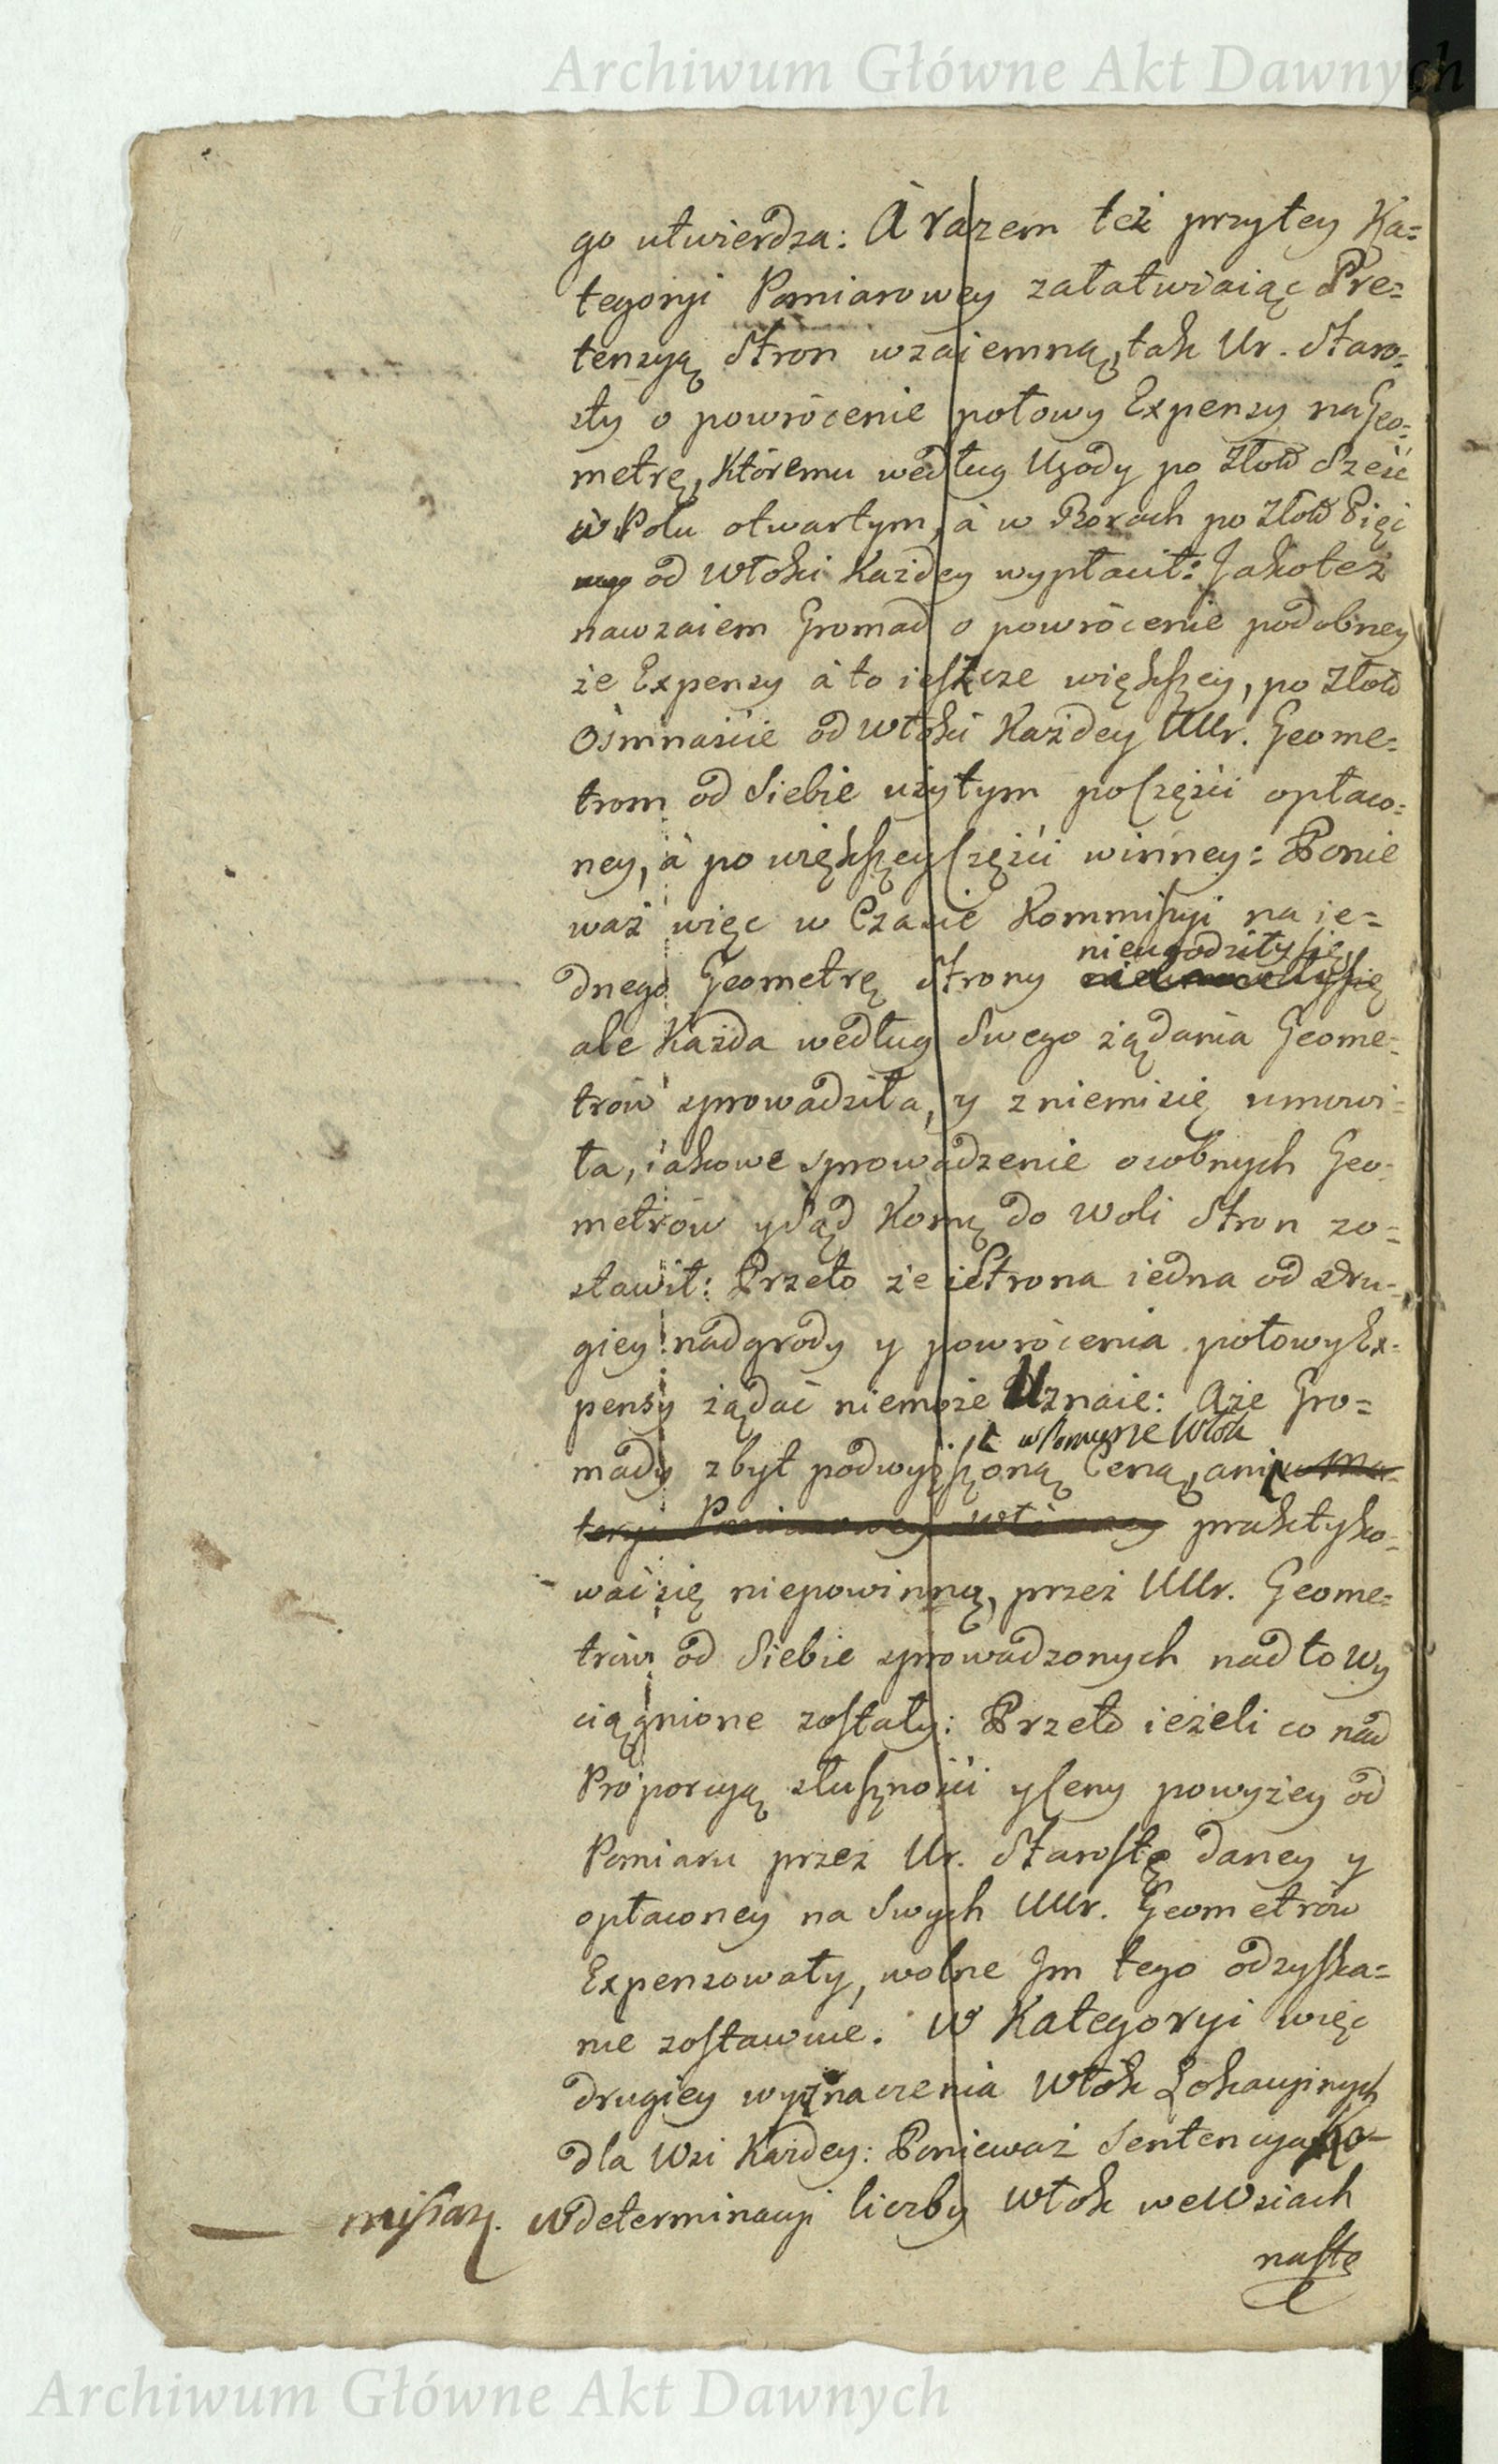 Archiwum Główne Akt Dawnych
go utwierdza: A razem też przytey Ka=
tegoryi Pomiarowey załatwiaiąc Pre=
tensyą Stron wzaiemną, tak Ur. Staro=
sty o powrócenie połowy Expensy na Geo=
metrę, Któremu według Ugody po Złotł Sześć
w Polu otwartym, à w Borach po Złotł Pięć
od Włoki Każdey wypłacił: Jakoteż
nawzaiem Gromad o powrócenie podobney
że Expensy à to ieszcze większey, po Złotł
Ośmnaście od Włoki Każdey UUr. Geome=
trom od Siebie użytym poczęści opłaco=
ney, à po większey części winney: Ponie
waż więc w Czasie Kommissyi na ie=
nieugodziły się,
dnego Geometrę Strony
ale Każda według Swego żądania Geome=
trów sprowadziła, y z niemi się umowi=
ła, iakowe sprowadzenie osobnych Geo=
metrów y Sąd Komę do woli Stron zo=
stawił: Przeto że iStrona iedna od dru=
giey nadgrody y powrócenia połowy Ex=
pensy żądać niemoże Uznaie: Aże Gro=
w Pomiarze Włók
mady zbyt podwyższoną Ceną, ani w Ma=
teryi Pomiarowey praktyko=
wać się niepowinną, przez UUr. Geome=
trów od Siebie sprowadzonych nad to wy
ciągnione zostały: Przeto ieżeli co nad
Proporcyą słuszności y Ceny powyżey od
Pomiaru przez Ur. Starostę daney y
opłaconey na Swych UUr. Geometrów
Expensowały, wolne Jm tego odzyska=
nie zostawuie. W Kategoryi więc
drugiey wyznaczenia Włók Lokacyinych
dla Wsi Każdey: Ponieważ Sentencya Ko=
misarz. w determinacyi liczby Włók we Wsiach
nastę
Archiwum Główne Akt Dawnych